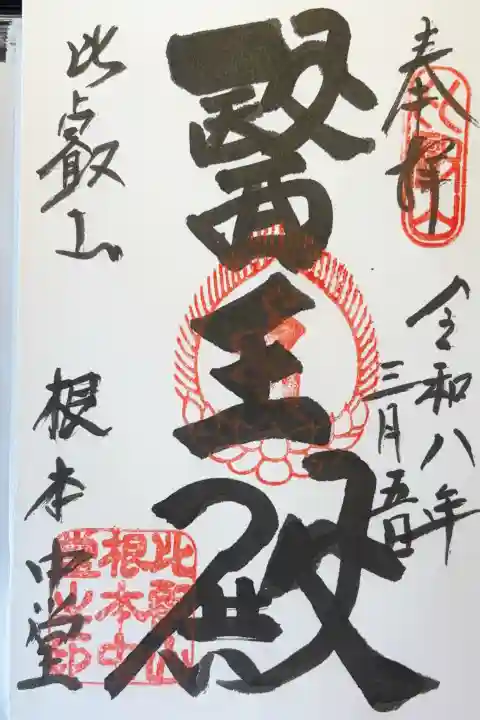 奉拝
比叡山
令和八年
三月五日
醫王殿
比叡山
根本中堂
比叡山
根本中
堂之印